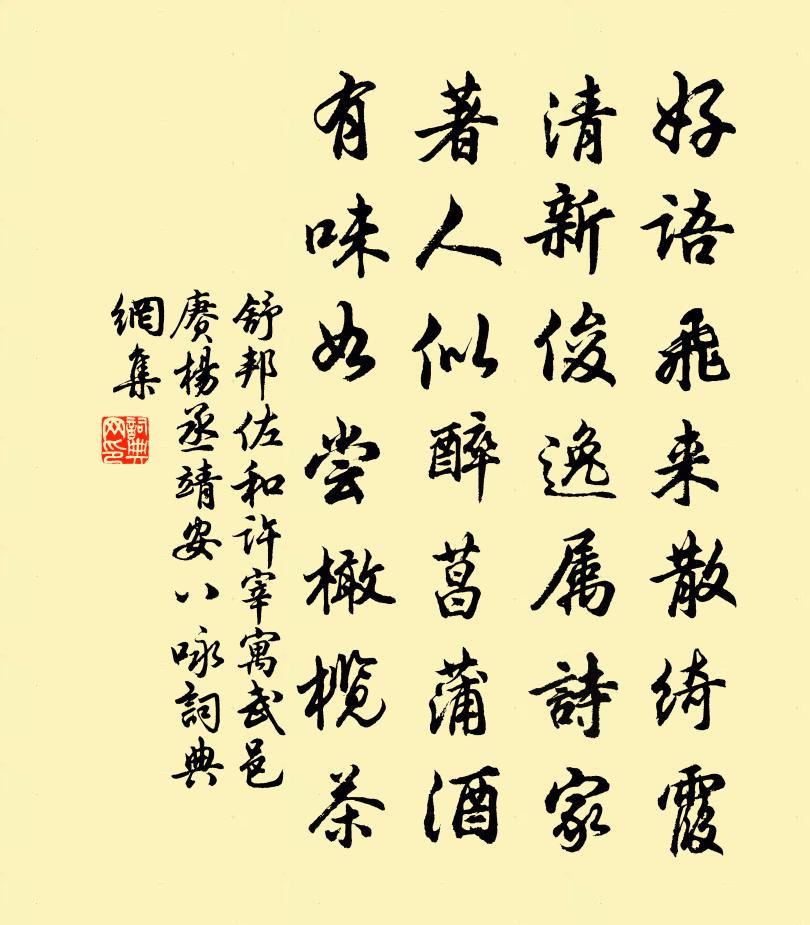 好語飛来散綺霞
清新俊逸属詩家
著人似醉菖蒲酒
有味如尝橄榄茶
舒邦佐和許宰寓武邑
赓楊丞靖安八咏詞典
網集
詞典
网印